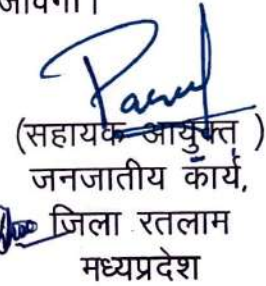 (सहायक आयुक्त )
जनजातीय कार्य,
जिला रतलाम
मध्यप्रदेश